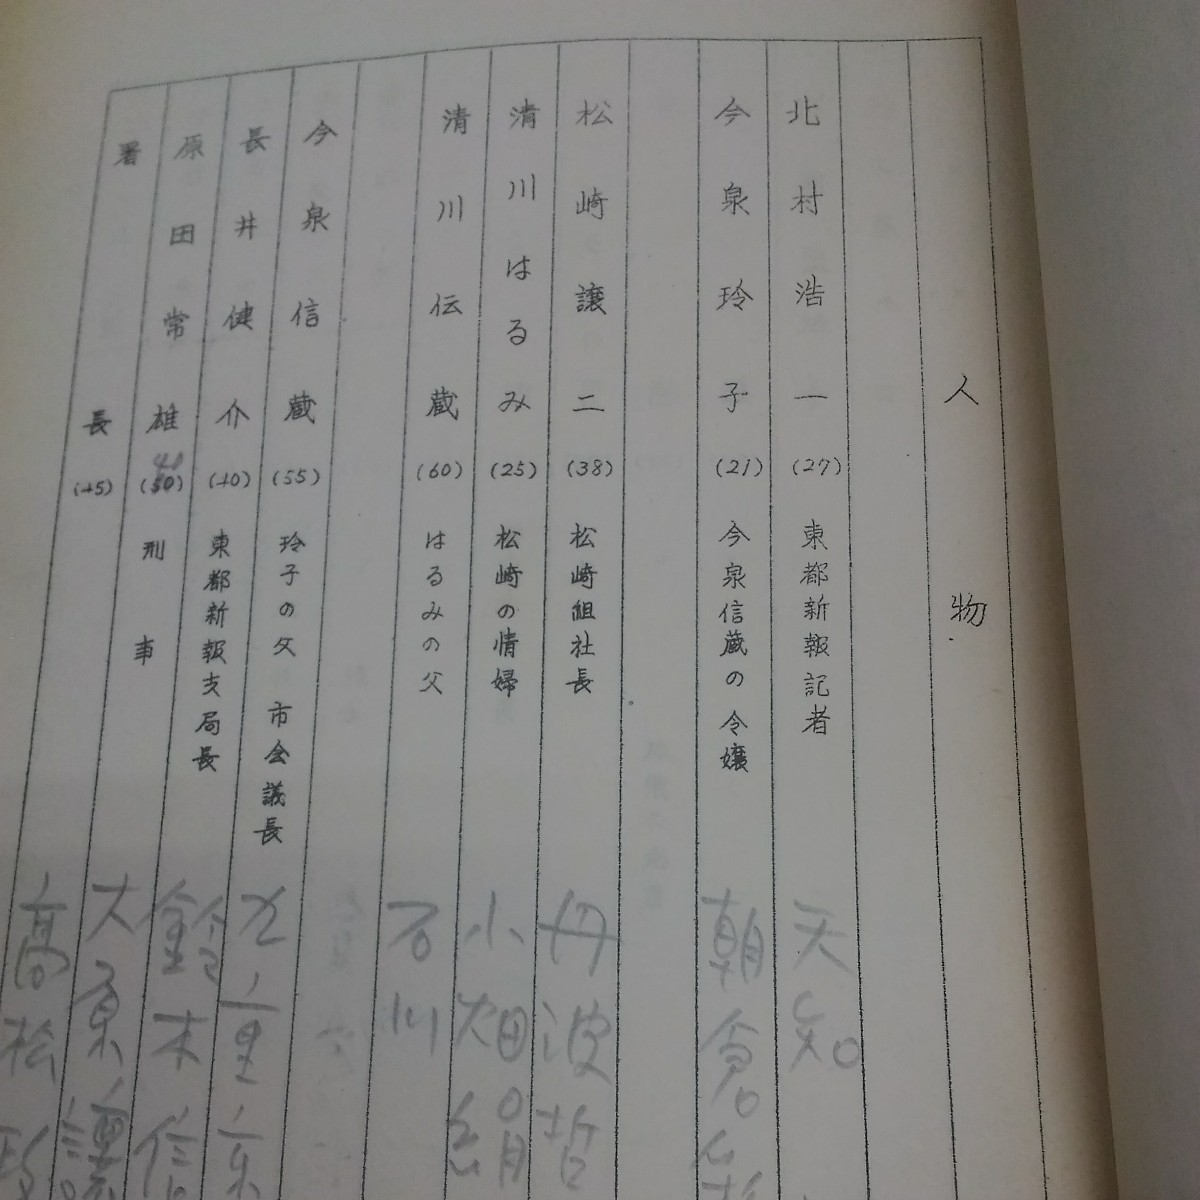 人物
北村浩一 (27) 東都新報記者 天知
今泉玲子 (21) 今泉信蔵の令嬢 朝倉
松崎譲二 (38) 松崎組社長 丹波哲
清川はるみ (25) 松崎の情婦 小畑絹
清川伝蔵 (60) はるみの父 石川
今泉信蔵 (55) 玲子の父 市会議長
長井健介 (40) 東都新報支局長 鈴木信
原田常雄 (50) 40 刑事 大原譲
署長 (45) 高松政